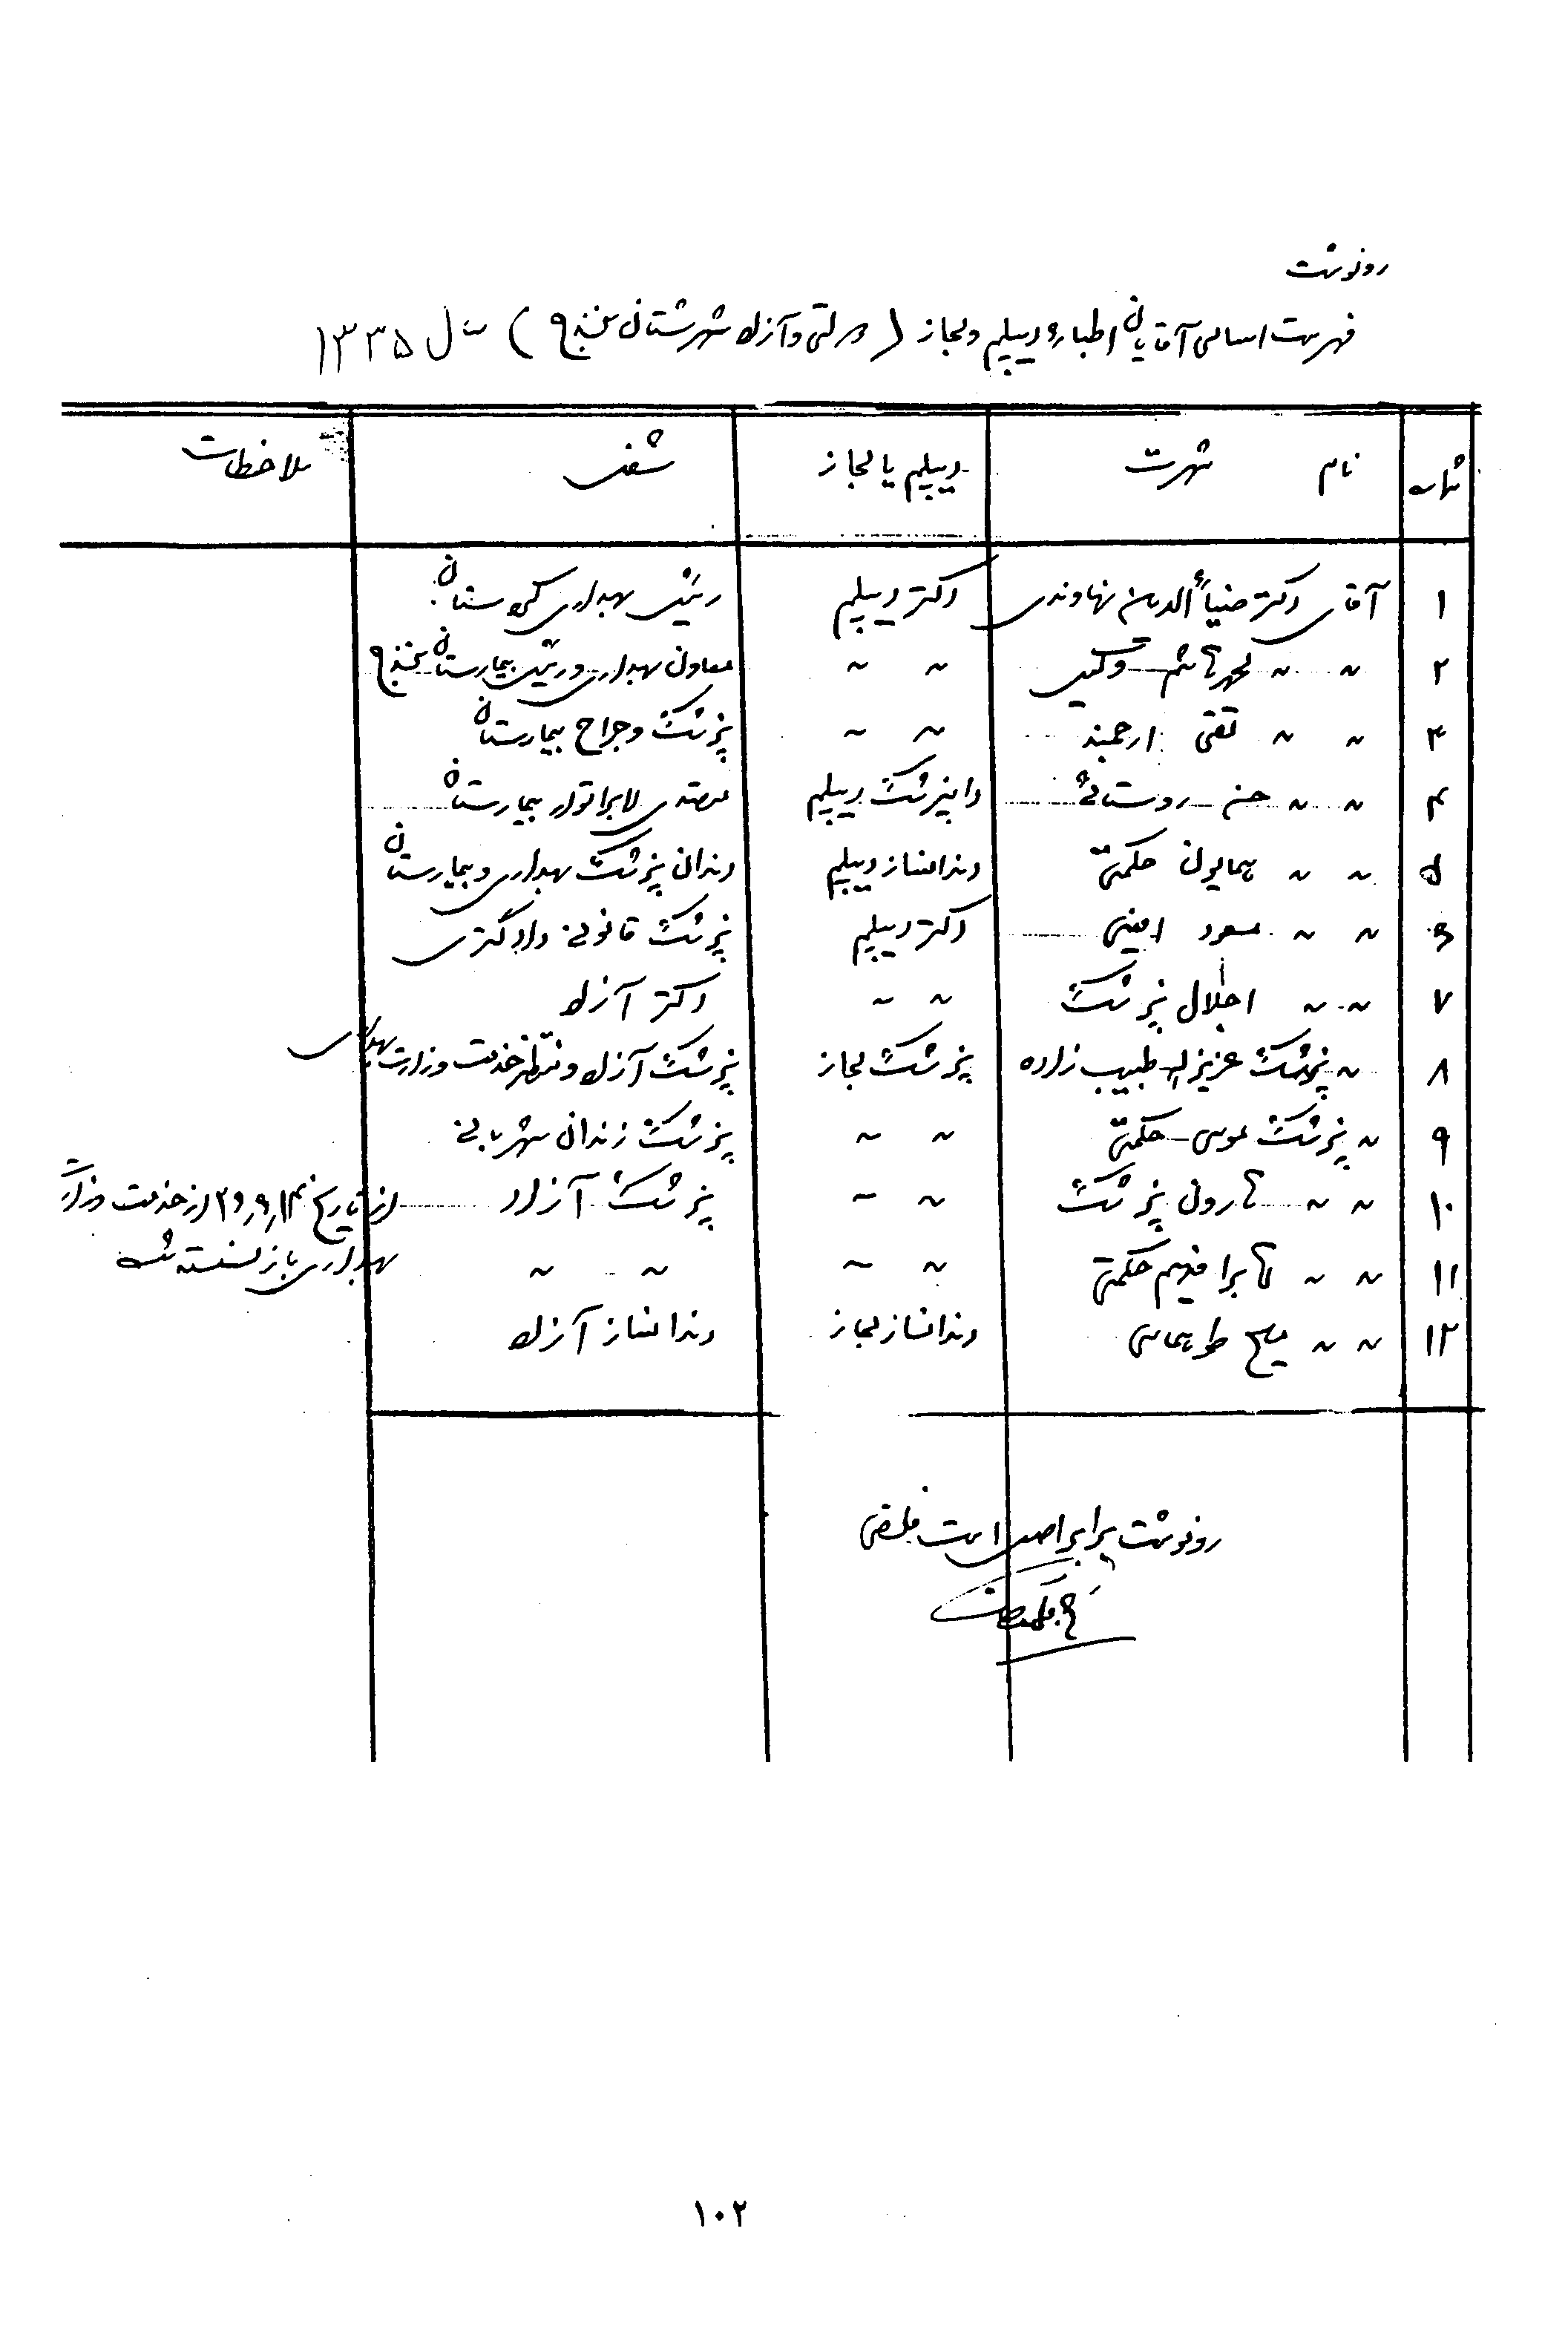 رونوشت
فهرست اسامی آقایان اطباء دیپلم و مجاز (دولتی و آزاد شهرستان سنندج) سال ۱۳۳۵
شماره نام شهرت دیپلم یا مجاز شغل ملاحظات
۱ آقای دکتر ضیاءالدین نهاوندی دکتر دیپلم رئیس بهداری کردستان
۲ " " محمد هاشم وکیلی " " معاون بهداری و رئیس بیمارستان سنندج
۳ " " تقی ارجمند " " پزشک و جراح بیمارستان
۴ " " حسن روستائی دامپزشک دیپلم متصدی لابراتوار بیمارستان
۵ " " همایون حکمتی دندانساز دیپلم دندان پزشک بهداری و بیمارستان
۶ " " مسعود امینی دکتر دیپلم پزشک قانونی دادگستری
۷ " " اجلال پزشک " " دکتر آزاد
۸ " پزشک عزیزاله طبیب زاده پزشک مجاز پزشک آزاد و منتظر خدمت وزارت بهداری
۹ " پزشک موسی حکمتی " " پزشک زندان شهربانی
۱۰ " " هارون پزشک " " پزشک آزاد از تاریخ از خدمت وزارت
بهداری بازنشسته شده
۱۱ " " حکمتی " " " "
۱۲ " " مسیح طهماسی دندانساز مجاز دندانساز آزاد
رونوشت برابر اصل است
۱۰۲